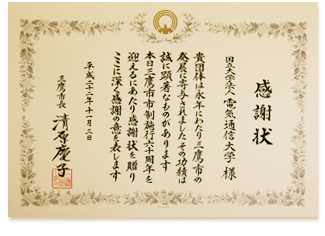 感謝状
国立大学法人 電気通信大学 様
貴団体は永年にわたり三鷹市の
発展に寄与されましたその功績は
誠に顕著なものがあります
本日三鷹市市制施行六十周年を
迎えるにあたり感謝状を贈り
ここに深く感謝の意を表します
平成二十二年十一月三日
三鷹市長 清原慶子